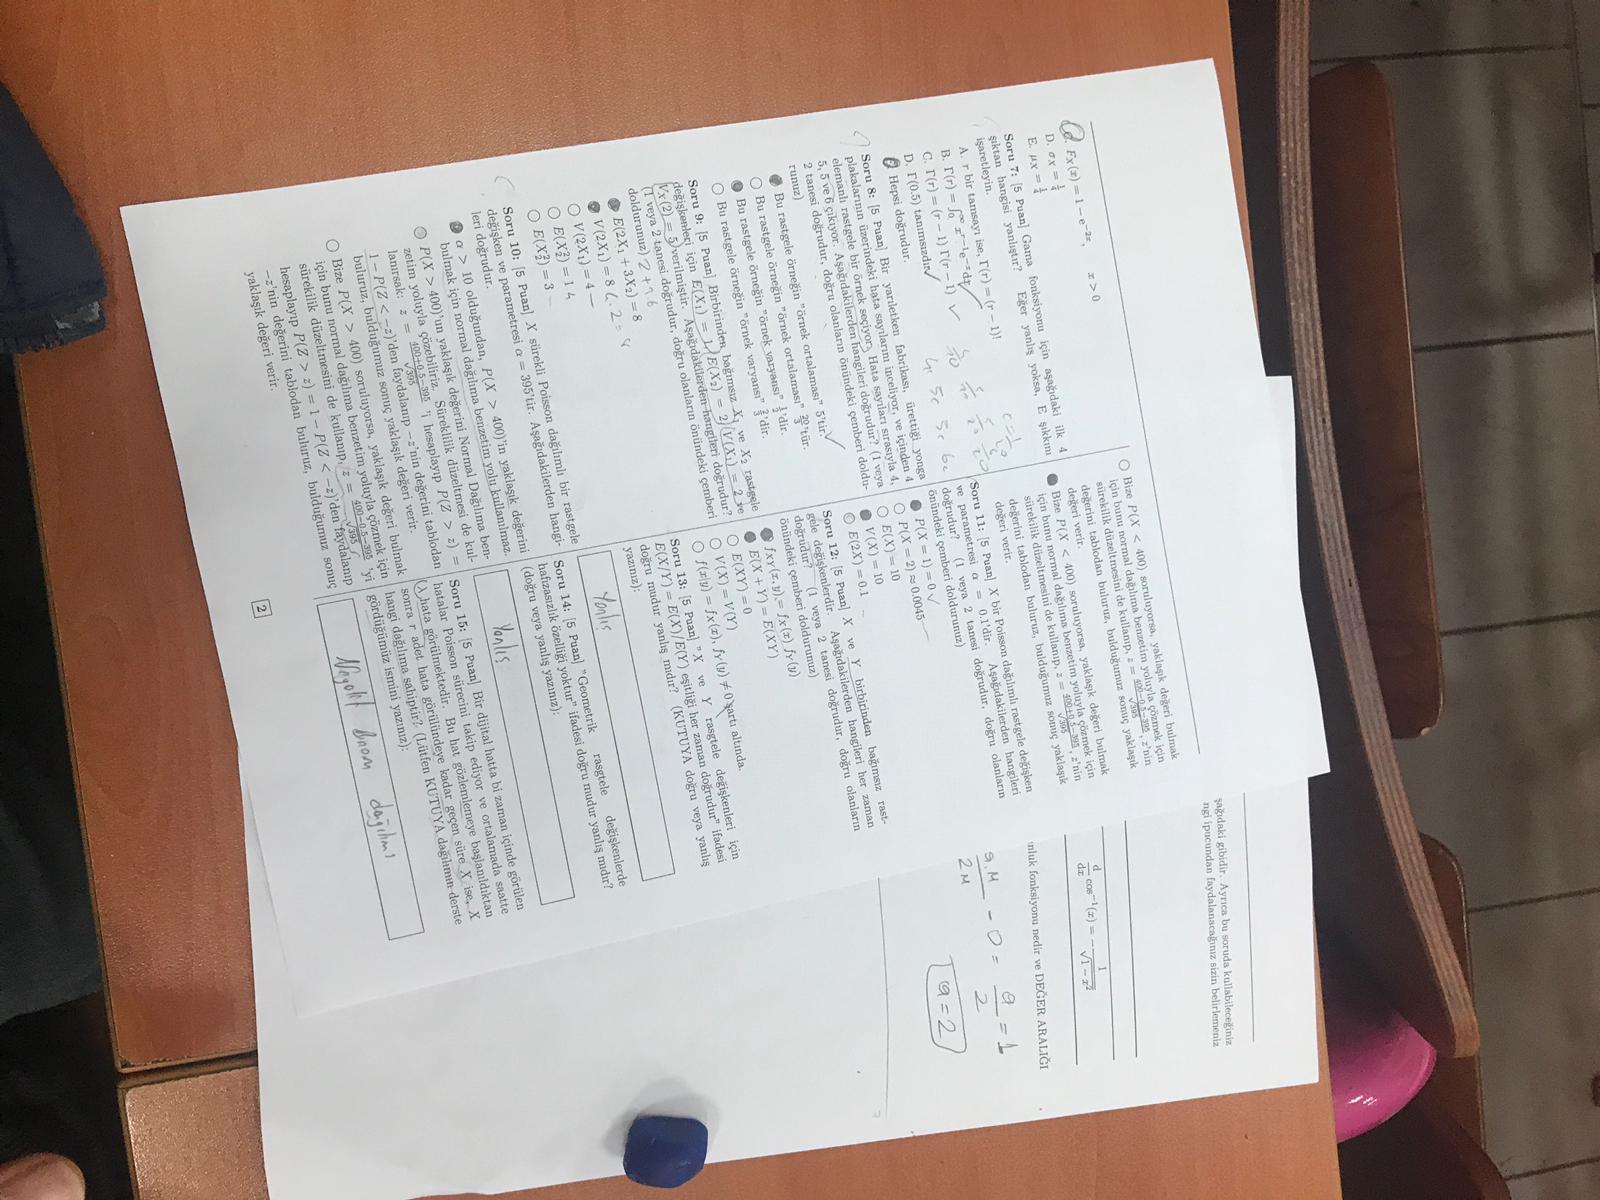 F_X(x) = 1 − e^{−2x}, x > 0
D. σ_X = 1/4
E. μ_X = 1/4
Soru 7: [5 Puan] Gama fonksiyonu için aşağıdaki ilk 4
şıktan hangisi yanlıştır? Eğer yanlış yoksa, E şıkkını
işaretleyin.
A. r bir tamsayı ise, Γ(r) = (r − 1)!
B. Γ(r) = ∫_0^∞ x^{r−1}e^{−x}dx
C. Γ(r) = (r − 1) Γ(r − 1)
D. Γ(0.5) tanımsızdır
Hepsi doğrudur.
Soru 8: [5 Puan] Bir yarıiletken fabrikası, ürettiği yonga
plakalarının üzerindeki hata sayılarını inceliyor, ve içinden 4
elemanlı rastgele bir örnek seçiyor. Hata sayıları sırasıyla 4,
5, 5 ve 6 çıkıyor. Aşağıdakilerden hangileri doğrudur? (1 veya
2 tanesi doğrudur, doğru olanların önündeki çemberi doldu-
runuz)
Bu rastgele örneğin "örnek ortalaması" 5'tir.
Bu rastgele örneğin "örnek ortalaması" 20/3'tür.
Bu rastgele örneğin "örnek varyansı" 1/3'dir.
Bu rastgele örneğin "örnek varyansı" 2/3'dir.
Soru 9: [5 Puan] Birbirinden bağımsız X_1 ve X_2 rastgele
değişkenleri için E(X_1) = 1, E(X_2) = 2, V(X_1) = 2 ve
V_X(2) = 5 verilmiştir. Aşağıdakilerden hangileri doğrudur?
(1 veya 2 tanesi doğrudur, doğru olanların önündeki çemberi
doldurunuz) 2+6
E(2X_1 + 3X_2) = 8
V(2X_1) = 8
V(2X_1) = 4
E(X_2^2) = 14
E(X_2^2) = 3
Soru 10: [5 Puan] X sürekli Poisson dağılımlı bir rastgele
değişken ve parametresi α = 395'tir. Aşağıdakilerden hangi-
leri doğrudur.
α > 10 olduğundan, P(X > 400)'in yaklaşık değerini
bulmak için normal dağılıma benzetim yolu kullanılmaz.
P(X > 400)'un yaklaşık değerini Normal Dağılıma ben-
zetim yoluyla çözebiliriz. Süreklilik düzeltmesi de kul-
lanırsak: z = (400+0.5−395)/√395 'i hesaplayıp P(Z > z) =
1 − P(Z < −z)'den faydalanıp −z'nin değerini tablodan
buluruz, bulduğumuz sonuç yaklaşık değeri verir.
Bize P(X > 400) soruluyorsa, yaklaşık değeri bulmak
için bunu normal dağılıma benzetim yoluyla çözmek için
süreklilik düzeltmesini de kullanıp, z = (400−0.5−395)/√395 'yi
hesaplayıp P(Z > z) = 1 − P(Z < −z)'den faydalanıp
−z'nin değerini tablodan buluruz, bulduğumuz sonuç
yaklaşık değeri verir.
Bize P(X < 400) soruluyorsa, yaklaşık değeri bulmak
için bunu normal dağılıma benzetim yoluyla çözmek için
süreklilik düzeltmesini de kullanıp, z = (400−0.5−395)/√395, z'nin
değerini tablodan buluruz, bulduğumuz sonuç yaklaşık
değeri verir.
Bize P(X < 400) soruluyorsa, yaklaşık değeri bulmak
için bunu normal dağılıma benzetim yoluyla çözmek için
süreklilik düzeltmesini de kullanıp, z = (400+0.5−395)/√395, z'nin
değerini tablodan buluruz, bulduğumuz sonuç yaklaşık
değeri verir.
Soru 11: [5 Puan] X bir Poisson dağılımlı rastgele değişken
ve parametresi α = 0.1'dir. Aşağıdakilerden hangileri
doğrudur? (1 veya 2 tanesi doğrudur, doğru olanların
önündeki çemberi doldurunuz)
P(X = 1) = 0
P(X = 2) ≈ 0.0045
E(X) = 10
V(X) = 10
E(2X) = 0.1
Soru 12: [5 Puan] X ve Y birbirinden bağımsız rast-
gele değişkenlerdir. Aşağıdakilerden hangileri her zaman
doğrudur? (1 veya 2 tanesi doğrudur, doğru olanların
önündeki çemberi doldurunuz)
f_{XY}(x, y) = f_X(x) f_Y(y)
E(X + Y) = E(XY)
E(XY) = 0
V(X) = V(Y)
f(x|y) = f_X(x) f_Y(y) ≠ 0 şartı altında.
Soru 13: [5 Puan] "X ve Y rasgtele değişkenleri için
E(X/Y) = E(X)/E(Y) eşitliği her zaman doğrudur" ifadesi
doğru mudur yanlış mıdır? (KUTUYA doğru veya yanlış
yazınız):
Yanlış
Soru 14: [5 Puan] "Geometrik rasgtele değişkenlerde
hafızasızlık özelliği yoktur" ifadesi doğru mudur yanlış mıdır?
(doğru veya yanlış yazınız):
Yanlış
Soru 15: [5 Puan] Bir dijital hatta bi zaman içinde görülen
hatalar Poisson sürecini takip ediyor ve ortalamada saatte
λ hata görülmektedir. Bu hat gözlemlemeye başlanıldıktan
sonra r adet hata görülündeye kadar geçen süre X ise, X
hangi dağılıma sahiptir? (Lütfen KUTUYA dağılımın derste
gördüğümüz ismini yazınız):
Negatif Binom dağılımı
2
şağıdaki gibidir. Ayrıca bu soruda kullabileceğiniz
ngi ipucundan faydalanacağınız sizin belirlemeniz
d/dx cos^{−1}(x) = −1/√(1 − x^2)
unluk fonksiyonu nedir ve DEĞER ARALIĞI
a.M/2M − 0 = a/2 = 1
a = 2